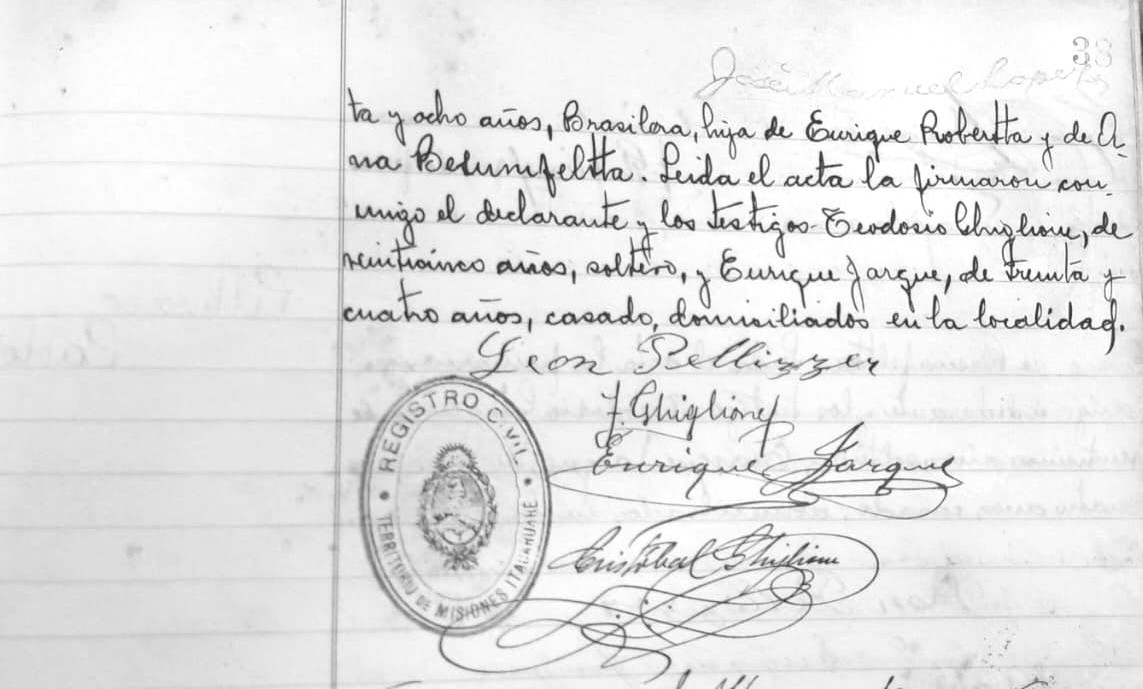 38
José Manuel Lopez
ta y ocho años, Brasilera, hija de Enrique Robertta y de A-
na Belumfeltta. Leida el acta la firmaron con-
migo el declarante y los testigos Teodosio Ghiglione, de
veinticinco años, soltero, y Enrique Jarque, de treinta y
cuatro años, casado, domiciliados en la localidad.
Leon Pellizzer
T. Ghiglione
Enrique Jarque
Cristóbal Ghiglione
REGISTRO CIVIL
TERRITORIO DE MISIONES ITACARUARE